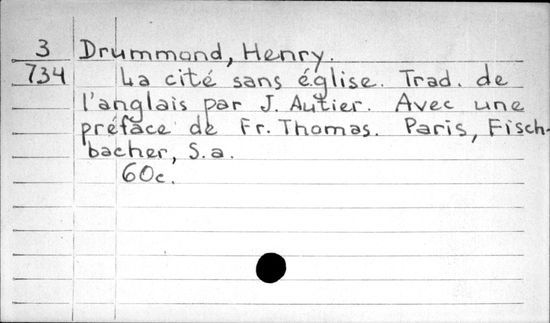 3 Drummond, Henry.
734 La cité sans église. Trad. de
l'anglais par J. Autier. Avec une
préface de Fr. Thomas. Paris, Fisch-
bacher, S.a.
60c.